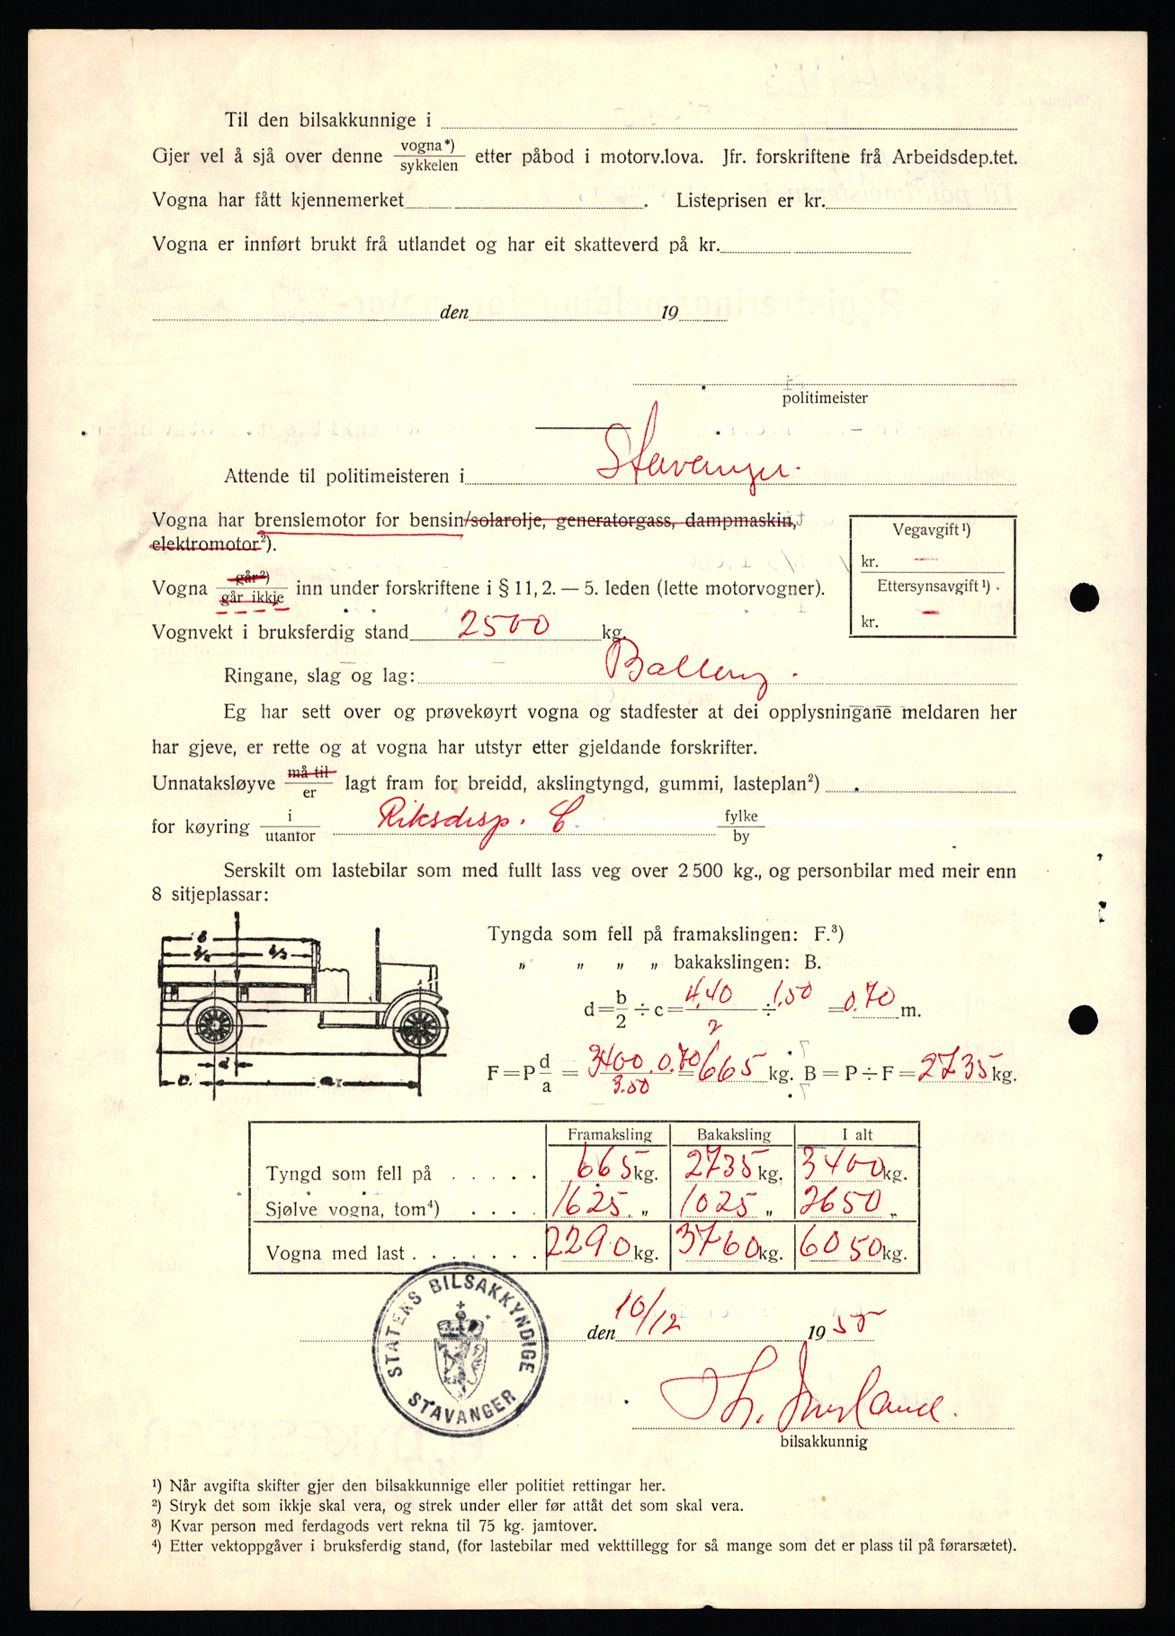 Til den bilsakkunnige i
Gjer vel å sjå over denne vogna*) / sykkelen etter påbod i motorv.lova. Jfr. forskriftene frå Arbeidsdep.tet.
Vogna har fått kjennemerket . Listeprisen er kr.
Vogna er innført brukt frå utlandet og har eit skatteverd på kr.
den 19
politimeister
Attende til politimeisteren i Stavanger.
Vogna har brenslemotor for bensin/solarolje, generatorgass, dampmaskin,
elektromotor²).
Vegavgift¹)
kr. —
Ettersynsavgift¹)
kr. —
Vogna går²) / går ikkje inn under forskriftene i § 11, 2. — 5. leden (lette motorvogner).
Vognvekt i bruksferdig stand 2500 kg.
Ringane, slag og lag: Ballong.
Eg har sett over og prøvekøyrt vogna og stadfester at dei opplysningane meldaren her
har gjeve, er rette og at vogna har utstyr etter gjeldande forskrifter.
Unnataksløyve må til / er lagt fram for breidd, akslingtyngd, gummi, lasteplan²)
for køyring i / utantor Riksdisp. C. fylke / by
Serskilt om lastebilar som med fullt lass veg over 2 500 kg., og personbilar med meir enn
8 sitjeplassar:
Tyngda som fell på framakslingen: F.³)
„ „ „ „ bakakslingen: B.
d = b/2 ÷ c = 4,40/2 ÷ 1.50 = 0.70 m.
F = P d/a = 3400 . 0.70 / 3.50 = 665 kg. B = P ÷ F = 2735 kg.
b
b/2 b/2
d
c a
Framaksling Bakaksling I alt
Tyngd som fell på . . . . . 665 kg. 2735 kg. 3400 kg.
Sjølve vogna, tom⁴) . . . . 1625 „ 1025 „ 2650 „
Vogna med last . . . . . . . 2290 kg. 3760 kg. 6050 kg.
STATENS BILSAKKYNDIGE
STAVANGER
den 10/12 1955
bilsakkunnig
¹) Når avgifta skifter gjer den bilsakkunnige eller politiet rettingar her.
²) Stryk det som ikkje skal vera, og strek under eller før attåt det som skal vera.
³) Kvar person med ferdagods vert rekna til 75 kg. jamtover.
⁴) Etter vektoppgåver i bruksferdig stand, (for lastebilar med vekttillegg for så mange som det er plass til på førarsætet).